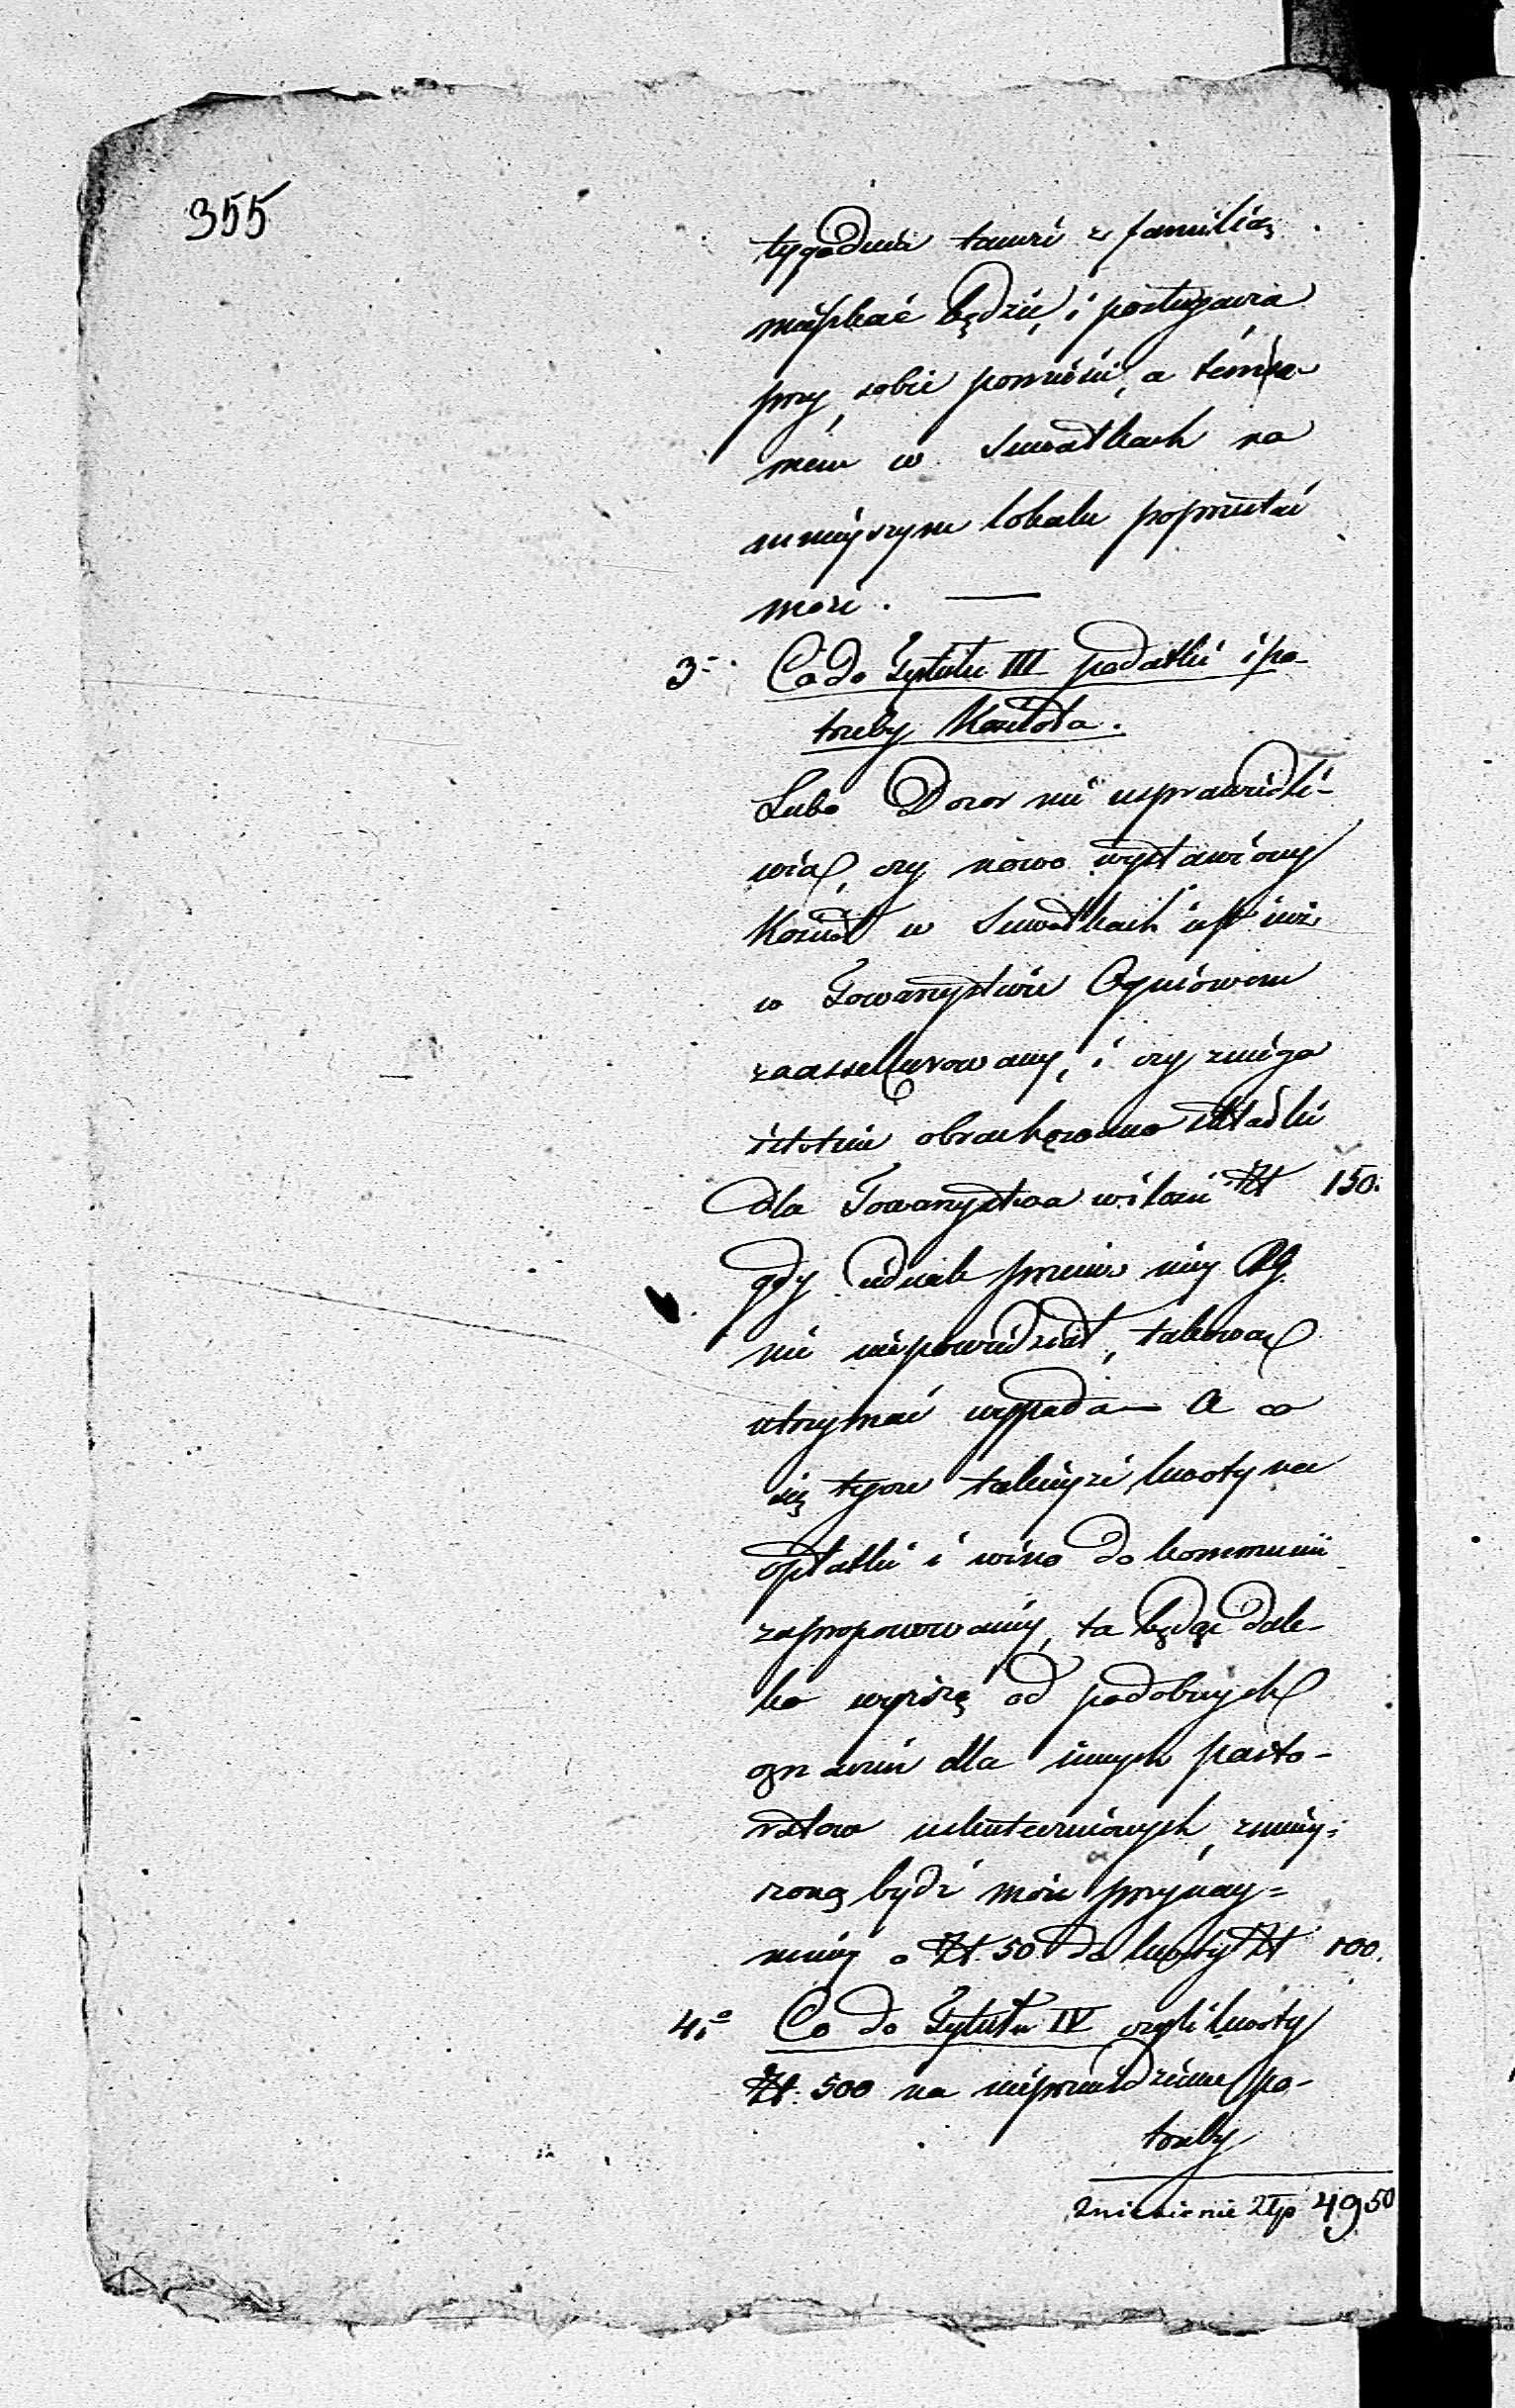 355
tygodnia tamże z familią
mieszkać będzie, i posługacza
przy sobie pomieści, a témsa-
mém w Suwałkach na
mnieyszym lokalu poprzestać
może. —
3° Co do Tytułu III podatki i po-
trzeby Kościoła.
Lubo Dozor nie usprawiedli-
wia, czy nowo wystawiony
Kościół w Suwałkach iest iuż
w Towarzystwie Ogniowem
zaassekurowany, i czy z niego
istotnie obrachowano składki
dla Towarzystwa w ilości Zł 150.
gdy iednak przeciw niey RG.
nic niepowiedział, takową
utrzymać wypada — A co
się tycze takieyże kwoty na
opłatki i wino do kommunii
zaproponowaney, ta będąc dale-
ko wyższą od podobnych
oznaczeń dla innych pasto-
ratów uskutecznionych, zmniey-
szoną bydź może przynay-
mniey o Zł. 50 do kwoty Zł 100.
4° Co do Tytułu IV czyli kwoty
Zł. 500 na nieprzewidziane po-
trzeby
Zniesienie Złp 4950